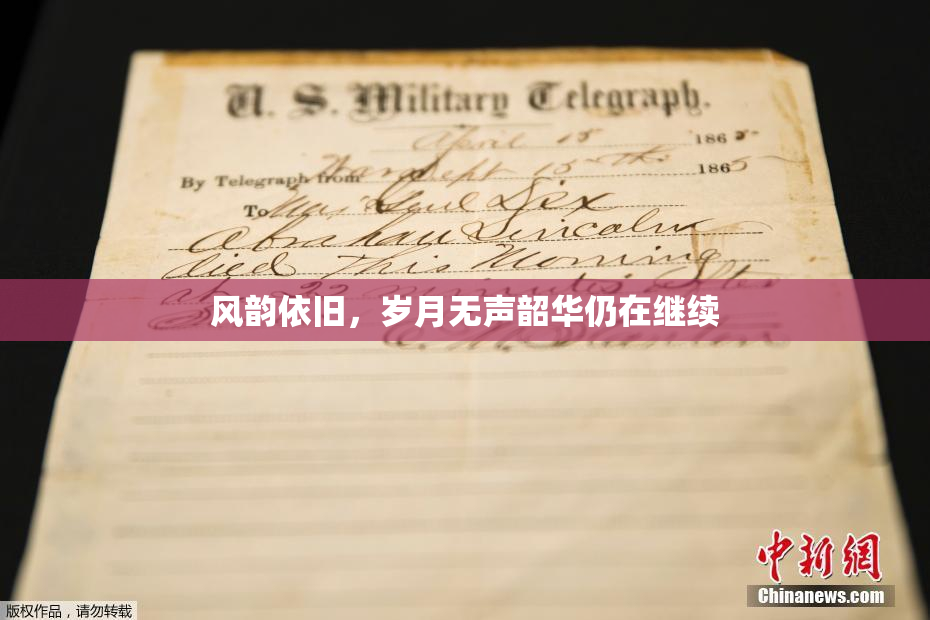 U. S. Military Telegraph.
April 15 1865-
By Telegraph from War Dept 15th 1865
To Maj Genl Dix
Abraham Lincoln
died This Morning
at 22 minutes after
风韵依旧，岁月无声韶华仍在继续
E. M. Stanton
中新网
Chinanews.com
版权作品，请勿转载